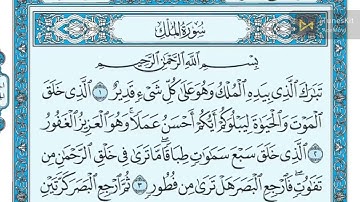 سُورَةُ المُلْكِ
بِسْمِ اللَّهِ الرَّحْمَٰنِ الرَّحِيمِ
تَبَارَكَ الَّذِي بِيَدِهِ الْمُلْكُ وَهُوَ عَلَىٰ كُلِّ شَيْءٍ قَدِيرٌ ١ الَّذِي خَلَقَ
الْمَوْتَ وَالْحَيَاةَ لِيَبْلُوَكُمْ أَيُّكُمْ أَحْسَنُ عَمَلًا وَهُوَ الْعَزِيزُ الْغَفُورُ
٢ الَّذِي خَلَقَ سَبْعَ سَمَاوَاتٍ طِبَاقًا مَّا تَرَىٰ فِي خَلْقِ الرَّحْمَٰنِ مِن
تَفَاوُتٍ فَارْجِعِ الْبَصَرَ هَلْ تَرَىٰ مِن فُطُورٍ ٣ ثُمَّ ارْجِعِ الْبَصَرَ كَرَّتَيْنِ